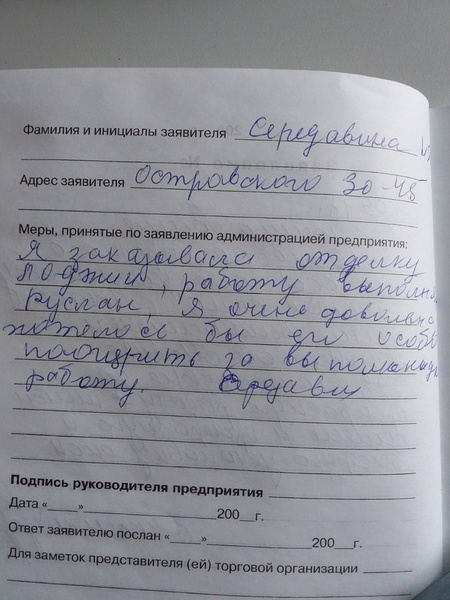 Фамилия и инициалы заявителя Середавина
Адрес заявителя Островского 30-45
Меры, принятые по заявлению администрацией предприятия:
Я заказывала отделку
лоджии, работу выполнял
Руслан, я очень довольна
хотелось бы его особо
поощрить за выполненную
работу.
Подпись руководителя предприятия
Дата «____»____________________200__г.
Ответ заявителю послан «____»________________200__г.
Для заметок представителя (ей) торговой организации